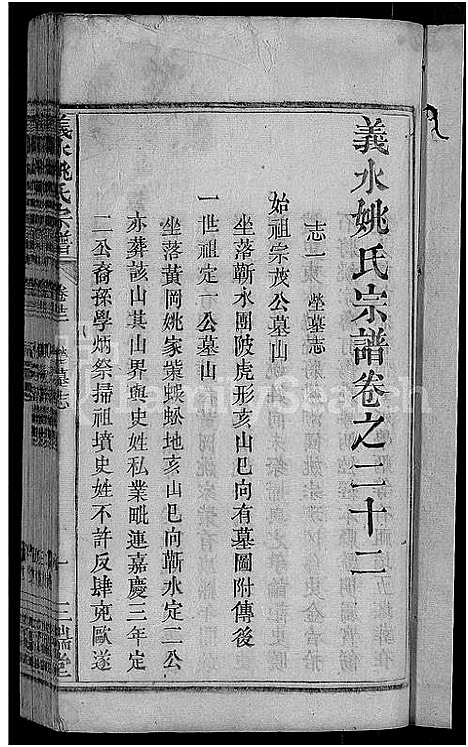 義水姚氏宗譜卷之二十二
志一 塋墓志
始祖宗茂公墓山
坐落蘄水團陂虎形亥山巳向有墓圖附傳後
一世祖定一公墓山
坐落黃岡姚家業蜈蚣地亥山巳向蘄水定二公
亦葬該山其山界與史姓私業毗連嘉慶三年定
二公裔孫學炳祭掃祖墳史姓不許反肆兇毆遂
義水姚氏宗譜
卷廿二
塋墓志
一
三瑞堂
FamilySearch